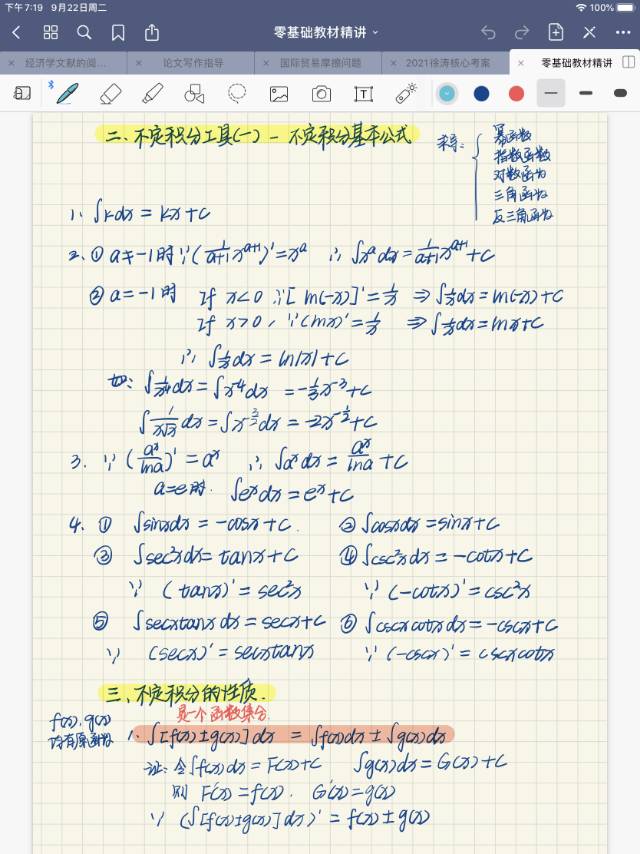 下午7:19 9月22日周二
100%
零基础教材精讲
经济学文献的阅... 论文写作指导 国际贸易摩擦问题 2021徐涛核心考案 零基础教材精讲
二、不定积分工具(一) - 不定积分基本公式
求导:
幂函数
指数函数
对数函数
三角函数
反三角函数
1、∫kdx = kx+C
2、① a≠-1时 ∵(1/(a+1) x^(a+1))' = x^a ∴ ∫x^a dx = 1/(a+1) x^(a+1) + C
② a=-1时 If x<0 ∵[ln(-x)]' = 1/x ⇒ ∫1/x dx = ln(-x)+C
If x>0, ∵(lnx)' = 1/x ⇒ ∫1/x dx = lnx+C
∴ ∫1/x dx = ln|x|+C
如: ∫1/x⁴ dx = ∫x⁻⁴dx = -1/3 x⁻³+C
∫1/(x√x) dx = ∫x^(-3/2) dx = -2x^(-1/2)+C
3. ∵ (a^x/lna)' = a^x ∴ ∫a^x dx = a^x/lna + C
a=e时. ∫e^x dx = e^x+C
4、① ∫sinxdx = -cosx+C. ② ∫cosxdx = sinx+C
③ ∫sec²xdx = tanx+C ④ ∫csc²xdx = -cotx+C
∵ (tanx)' = sec²x ∵ (-cotx)' = csc²x
⑤ ∫secxtanxdx = secx+C ⑥ ∫cscxcotxdx = -cscx+C
∵ (secx)' = secxtanx ∵ (-cscx)' = cscxcotx
三、不定积分的性质.
是一个函数集合.
f(x), g(x)
均有原函数
1. ∫[f(x)±g(x)]dx = ∫f(x)dx ± ∫g(x)dx
证: 令∫f(x)dx = F(x)+C ∫g(x)dx = G(x)+C
则 F'(x) = f(x). G'(x) = g(x)
∵ (∫[f(x)±g(x)]dx)' = f(x)±g(x)